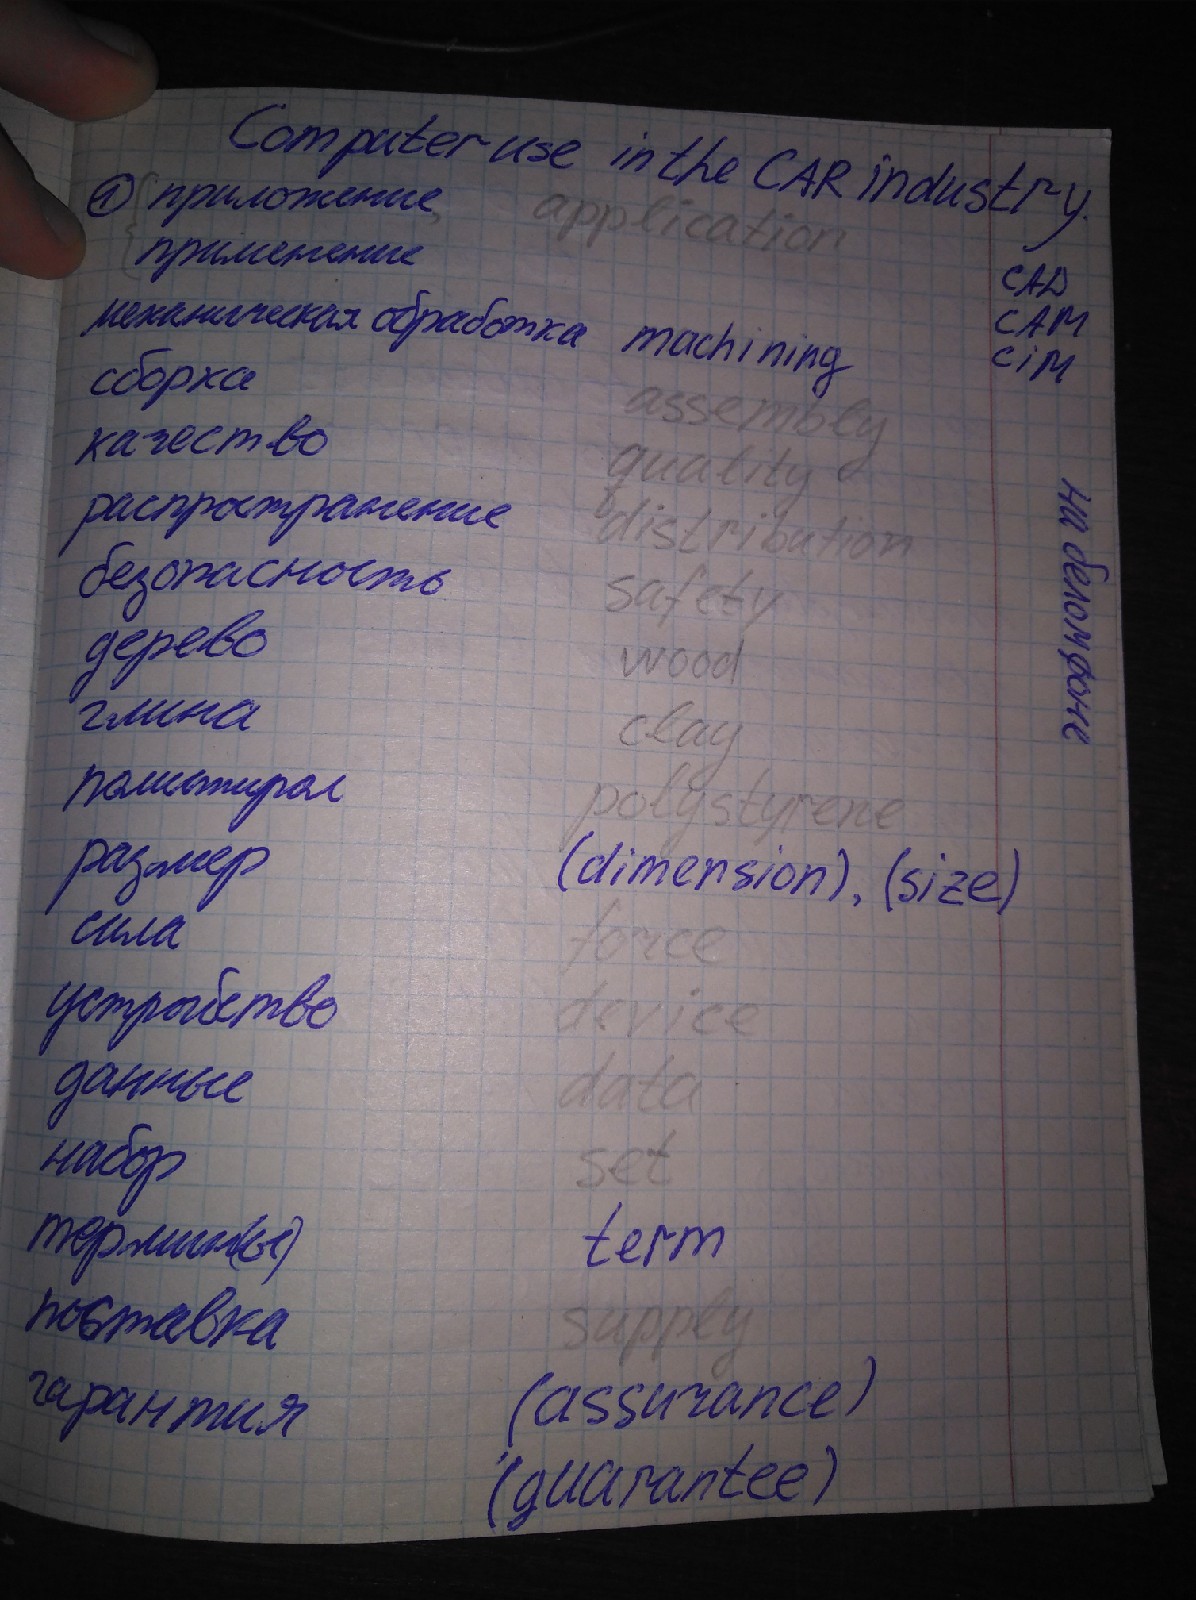 Computer use in the CAR industry.
① приложение, application
применение
CAD
механическая обработка machining CAM
сборка assembly CiM
качество quality
распространение distribution
безопасность safety
дерево wood
глина clay
полистирол polystyrene
размер (dimension), (size)
сила force
устройство device
данные data
набор set
термин(ы) term
поставка supply
гарантия (assurance)
(guarantee)
на белом фоне